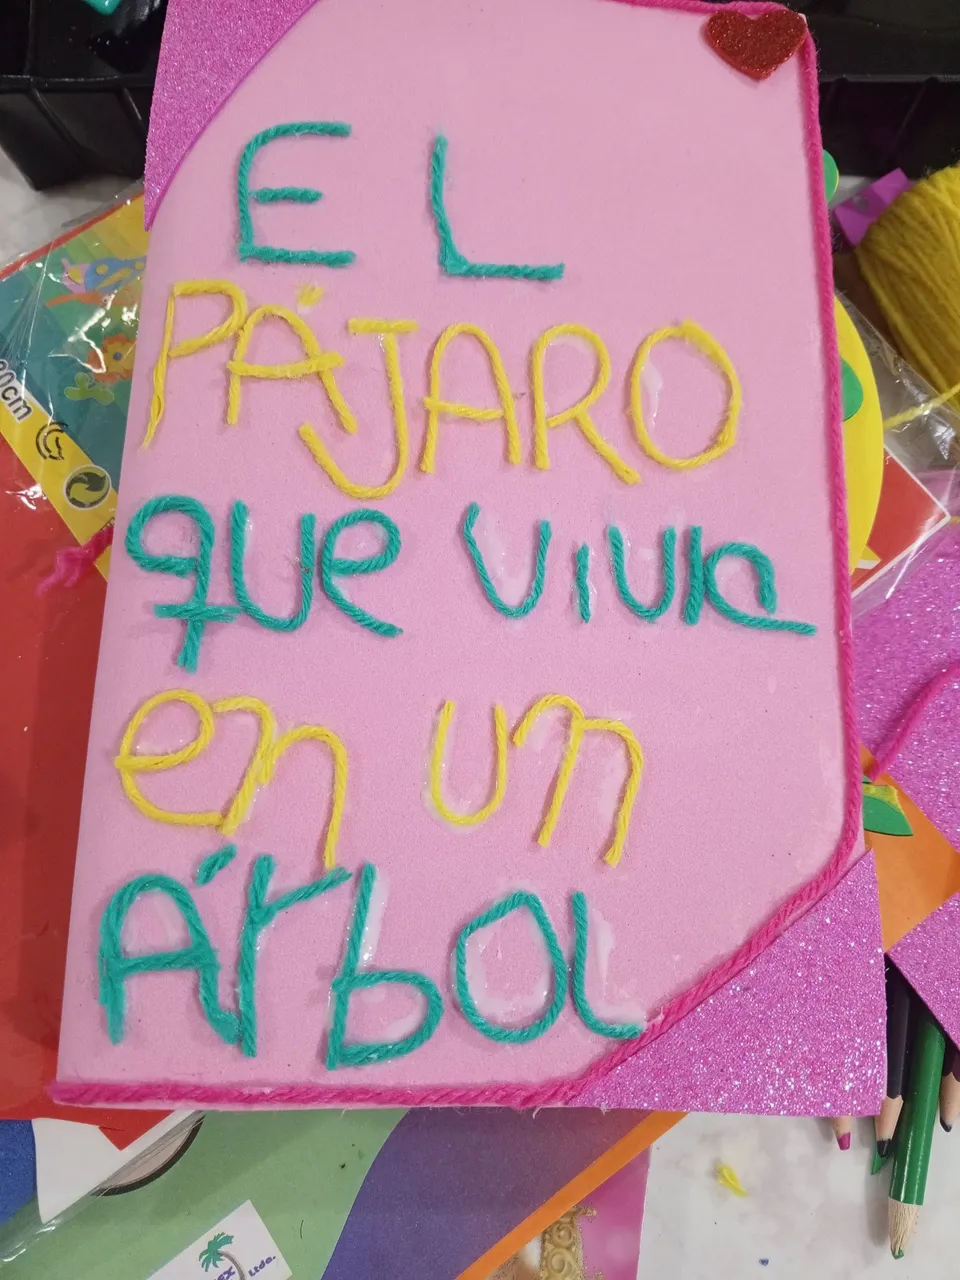 EL
PÁJARO
que viVIa
en un
Árbol
20cm
EX
Ltda.